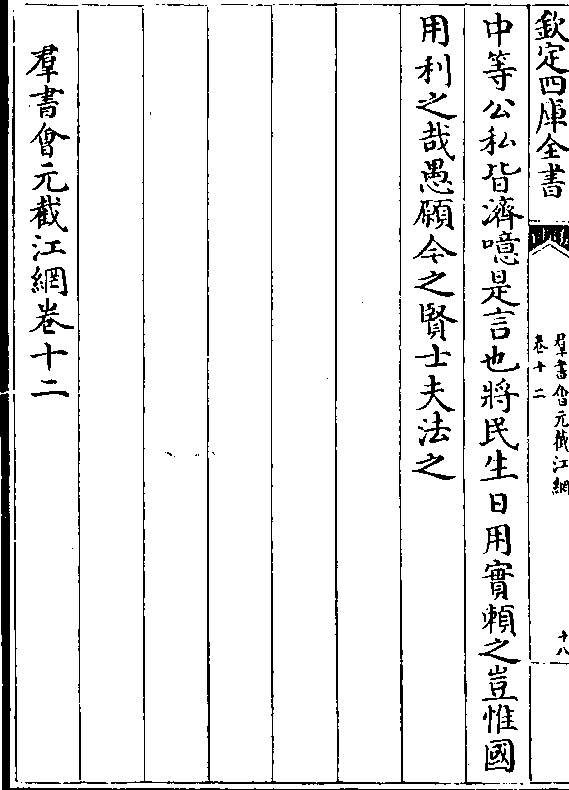 欽定四庫全書
羣書會元截江網
卷十二
十八
中等公私皆濟噫是言也將民生日用實賴之豈惟國
用利之哉愚願今之賢士夫法之
羣書會元截江網卷十二